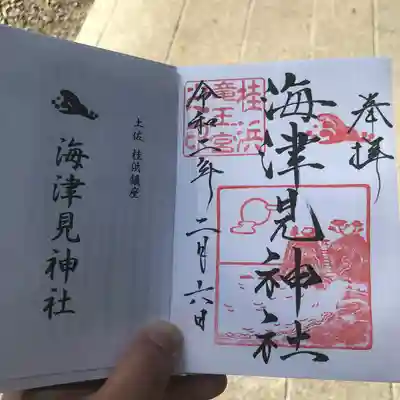 奉拝
海津見神社
桂浜
竜王宮
令和二年
二月六日
土佐 桂浜鎮座
海津見神社